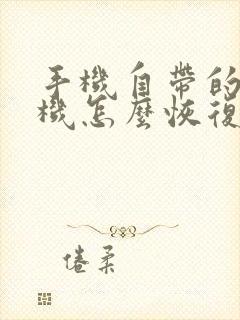 手機自帶的
機怎麼恢復
倦柔